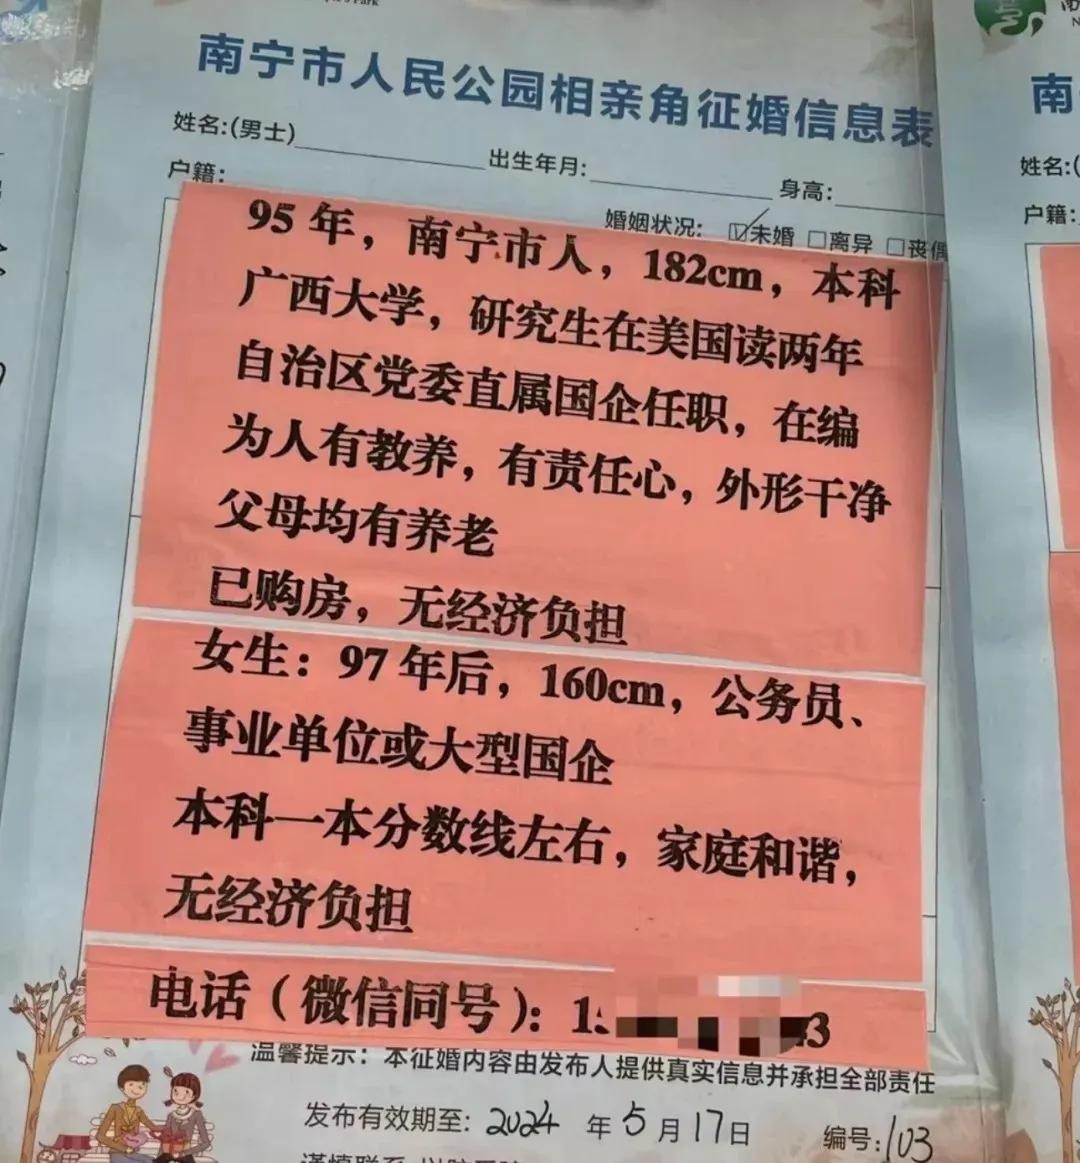 南宁市人民公园相亲角征婚信息表
姓名:(男士) 出生年月: 身高:
户籍: 婚姻状况: ☑未婚 □离异 □丧偶
95年，南宁市人，182cm，本科
广西大学，研究生在美国读两年
自治区党委直属国企任职，在编
为人有教养，有责任心，外形干净
父母均有养老
已购房，无经济负担
女生：97年后，160cm，公务员、
事业单位或大型国企
本科一本分数线左右，家庭和谐，
无经济负担
电话（微信同号）：1 3
温馨提示：本征婚内容由发布人提供真实信息并承担全部责任
发布有效期至: 2024 年 5 月 17 日 编号: 103
南
姓名:(
户籍: